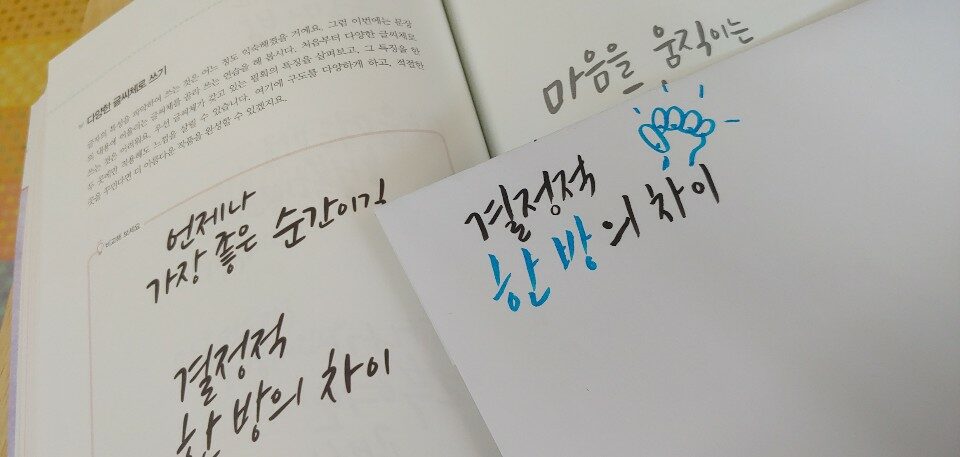 다양한 글씨체로 쓰기
글자의 특징을 파악하여 쓰는 것은 어느 정도 익숙해졌을 거예요. 그럼 이번에는 문장
의 내용에 어울리는 글씨체를 골라 쓰는 연습을 해 봅시다. 처음부터 다양한 글씨체로
쓰는 것은 어려워요. 우선 글씨체가 갖고 있는 필획의 특징을 살펴보고, 그 특징을 한
두 곳에만 적용해도 느낌을 살릴 수 있습니다. 여기에 구도를 다양하게 하고, 적절한
것을 꾸민다면 더 아름다운 작품을 완성할 수 있겠지요.
비교해 보세요
언제나
가장 좋은 순간이길
결정적
한 방의 차이
마음을 움직이는
결정적
한 방의 차이